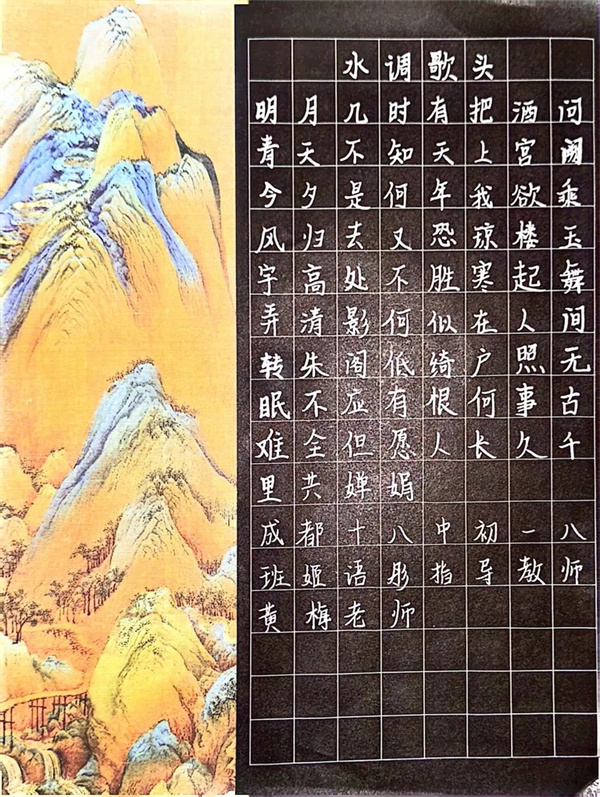 水调歌头
明月几时有把酒问
青天不知天上宫阙
今夕是何年我欲乘
风归去又恐琼楼玉
宇高处不胜寒起舞
弄清影何似在人间
转朱阁低绮户照无
眠不应有恨何事古
难全但愿人长久千
里共婵娟
成都十八中初一八
班姬语彤指导教师
黄梅老师